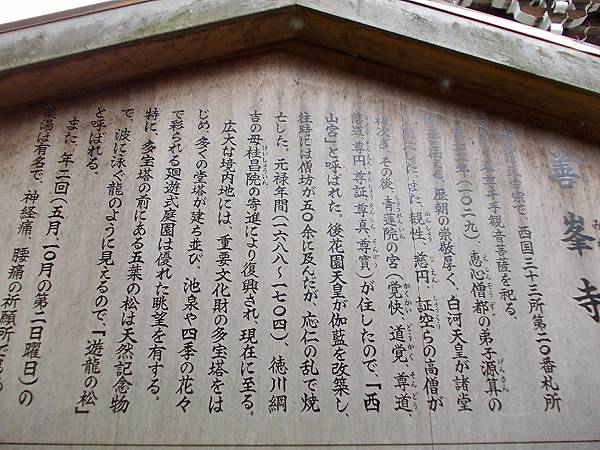 善峯寺
宗で、西国三十三所第二0番札所
千手観音菩薩を祀る。
年(一0二九)恵心僧都の弟子源算の
歴朝の崇敬厚く、白河天皇が諸堂
した。また、観性、慈円、証空らの高僧が
相次ぎ、その後、青蓮院の宮(覚快、道覚、尊道、
慈道、尊円、尊証、尊真、尊宝)が住したので、「西
山宮」と呼ばれた。後花園天皇が伽藍を改築し、
往時には僧坊が五0余に及んだが、応仁の乱で焼
亡した。元禄年間(一六八八~一七0四)、徳川綱
吉の母桂昌院の寄進により復興され、現在に至る。
広大な境内地には、重要文化財の多宝塔をは
じめ、多くの堂塔が建ち並び、池泉や四季の花々
で彩られる廻遊式庭園は優れた眺望を有する。
特に、多宝塔の前にある五葉の松は天然記念物
で、波に泳ぐ龍のように見えるので、「遊龍の松」
と呼ばれる。
また、年二回(五月、一0月の第二日曜日)の
薬湯は有名で、神経痛、腰痛の祈願所でもあ